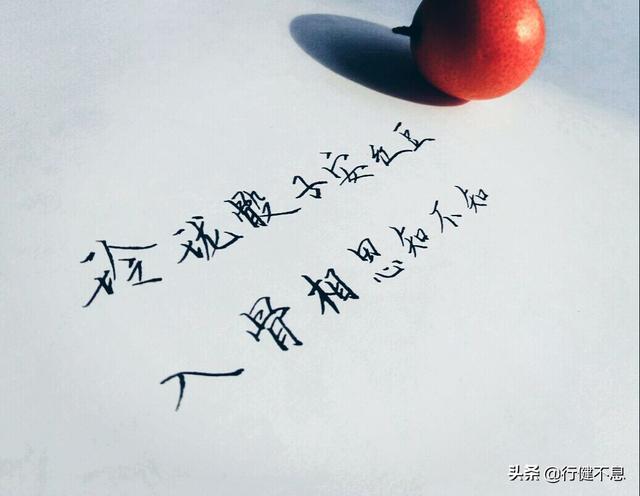 玲珑骰子安红豆
入骨相思知不知
头条 @行健不息